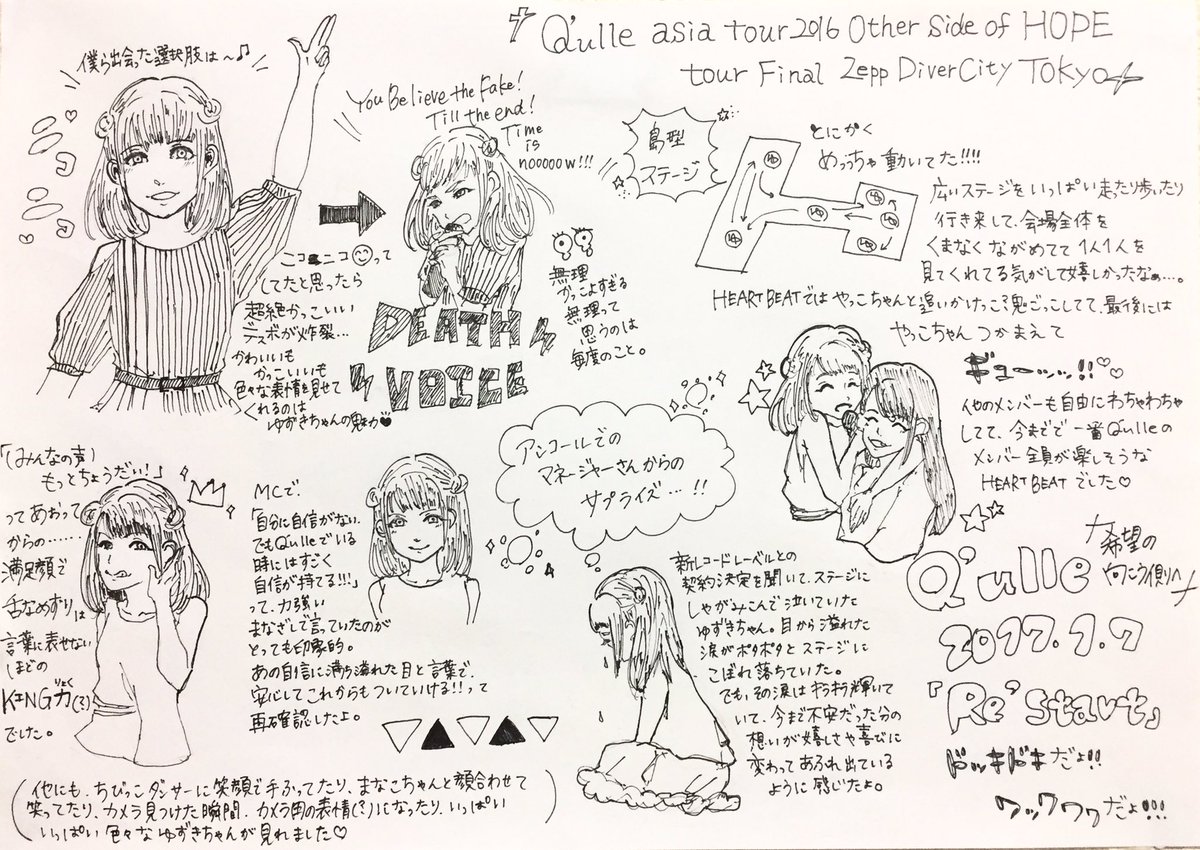 Q'ulle asia tour2016 Other Side of HOPE
tour Final Zepp DiverCity TOKYO
僕ら出会った選択肢は〜♫
You Believe the Fake!
Till the end!
Time
is
nooooow!!!
島型
ステージ
とにかく
めっっちゃ動いてた!!!!
広いステージをいっぱい走たり歩いたり
行き来して、会場全体を
くまなくながめてて1人1人を
見てくれてる気がして嬉しかったなぁ…。
HEARTBEATではやっこちゃんと追いかけっこ?鬼ごっこしてて、最後には
やっこちゃんつかまえて
ギューッッ!!♡♡
他のメンバーも自由にわちゃわちゃ
してて、今までで一番Q'ulleの
メンバー全員が楽しそうな
HEARTBEATでした♡
ニコニコ☺って
してたと思ったら
超絶かっこいい
デスボが炸裂…
かわいいも
かっこいいも
色々な表情を見せて
くれるのは
ゆずきちゃんの魅力♥
DEATH
VOICE
無理
かっこよすぎる
無理って
思うのは
毎度のこと。
「(みんなの声)
もっとちょうだい!」
ってあおって
からの……
満足顔で
舌なめずりは
言葉に表せない
ほどの
KING力(?)
りょく
でした。
MCで、
「自分に自信がない、
でもQ'ulleでいる
時にはすごく
自信が持てる!!!」
って、力強い
まなざしで言っていたのが
とっても印象的。
あの自信に満ち溢れた目と言葉で、
安心してこれからもついていける!!って
再確認したよ。
アンコールでの
マネージャーさんからの
サプライズ…!!
新レコードレーベルとの
契約決定を聞いて、ステージに
しゃがみこんで泣いていた
ゆずきちゃん。目から溢れた
涙がポタポタとステージに
こぼれ落ちていた。
でも、その涙はキラキラ輝いて
いて、今まで不安だった分の
想いが嬉しさや喜びに
変わってあふれ出ている
ように感じたよ。
希望の
向こう側へ
Q'ulle
2017.1.7
『Re'start』
ドッキドキだよ!!
ワックワクだよ!!!
(他にも、ちびっこダンサーに笑顔で手ふってたり、まなこちゃんと顔合わせて
笑ってたり、カメラ見つけた瞬間、カメラ用の表情(?)になったり、いっぱい
いっぱい色々なゆずきちゃんが見れました♡)